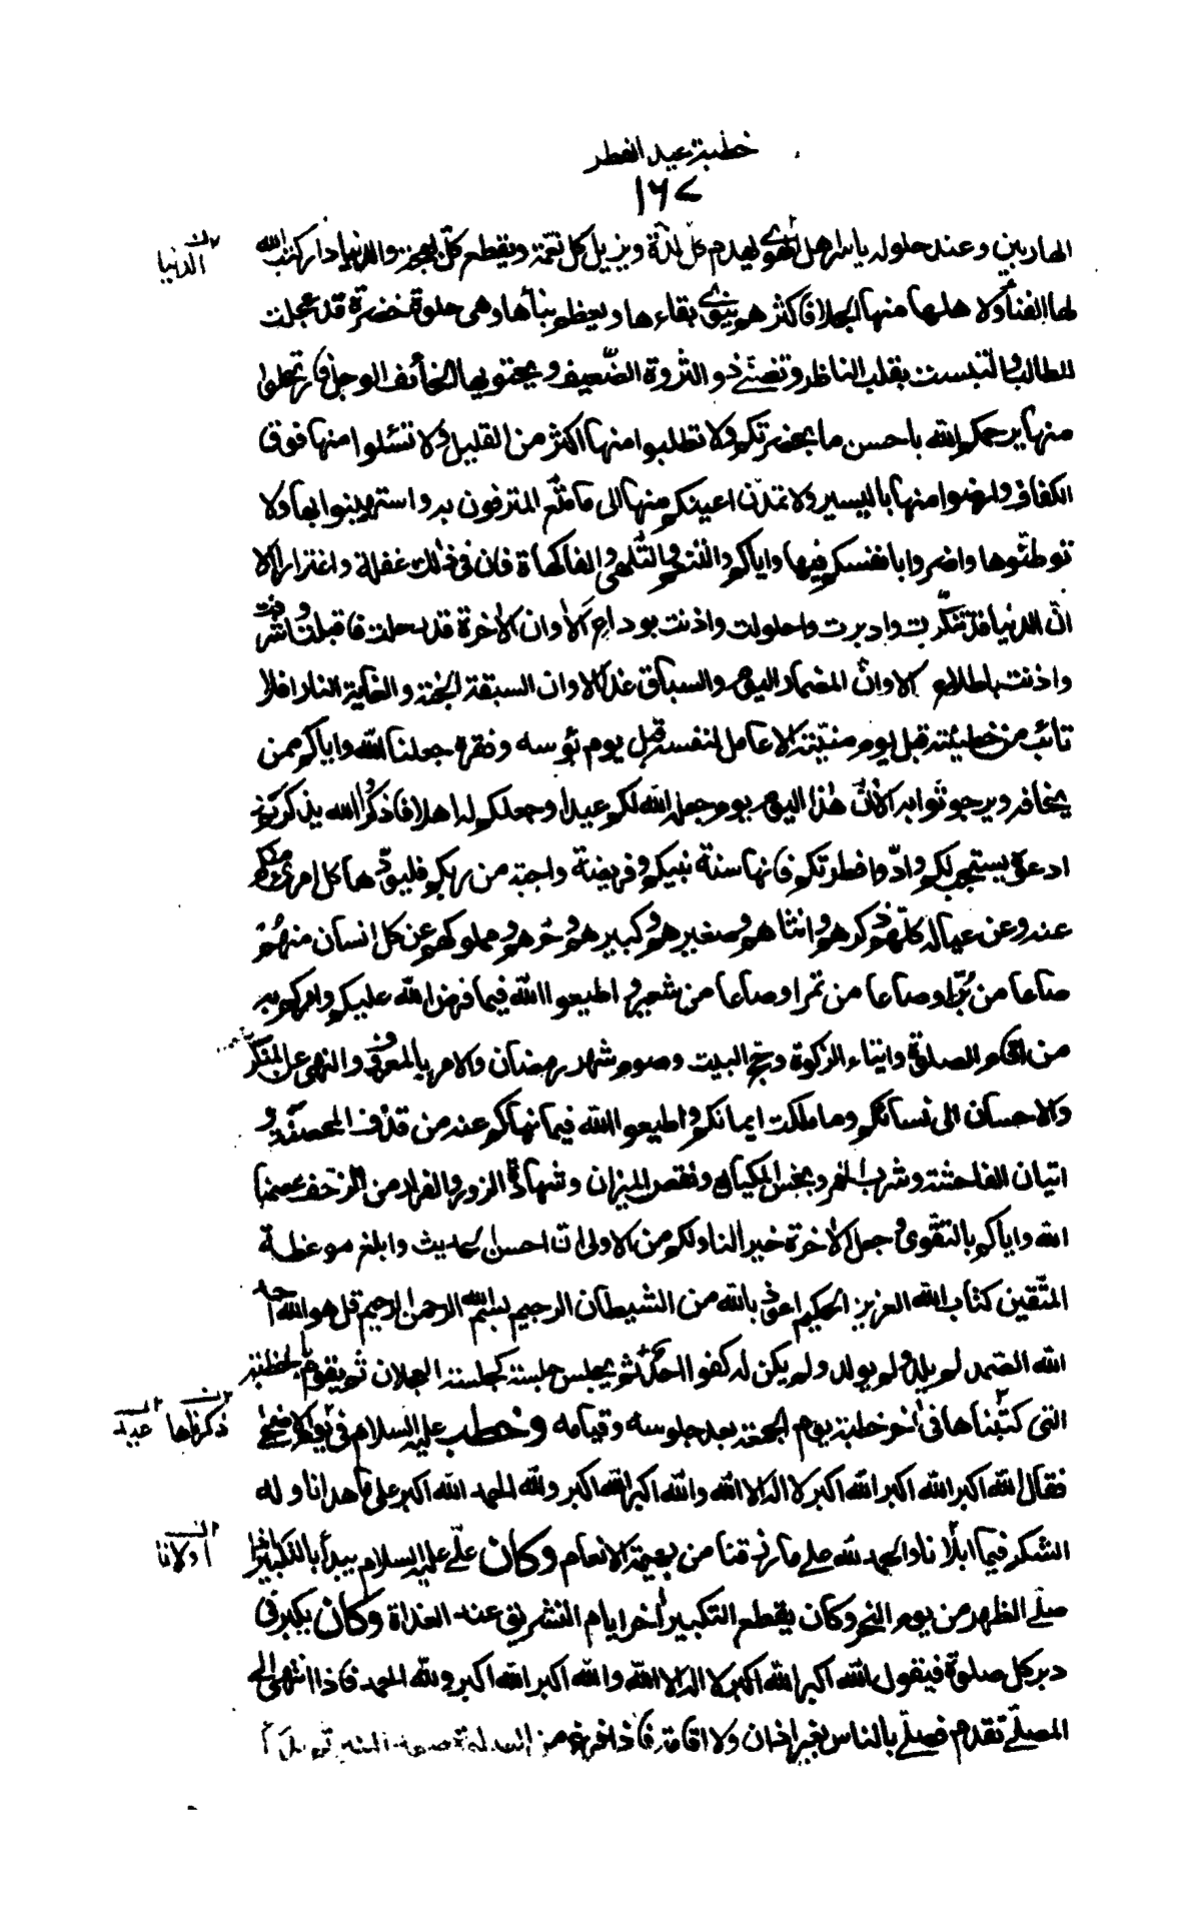 خطبة عيد الفطر
١٦٧
الهاربين وعند حلوله يأسر اهل الهوى يهدم كل لذة ويزيل كل نعمة ويقطع كل بهجة والدنيا دار كتب الله
الدنيا
لها الفناء ولاهلها منها الجلاء فاكثرهم ينوي بقاءها ويعظم بناءها وهى حلوة خضرة قد عجلت
للطالب والتبست بقلب الناظر وتضنى ذو الثروة الضعيف ويجتويها الخائف الوجل فارتحلوا
منها يرحمكم الله باحسن ما بحضرتكم ولا تطلبوا منها اكثر من القليل ولا تسئلوا منها فوق
الكفاف وارضوا منها باليسير ولا تمدن اعينكم منها الى ما متع المترفون به واستهينوا بها ولا
توطنوها واضروا بانفسكم فيها واياكم والتنعم والتلهى والفاكهاة فان فى ذلك غفلة واغترارا الا
ان الدنيا قد تنكرت وادبرت واحلولت واذنت بوداع الا وان الاخرة قد رحلت فاقبلت واشرفت
واذنت باطلاع الا وان المضمار اليوم والسباق غدا الا وان السبقة الجنة والغاية النار افلا
تائب من خطيئته قبل يوم منيته الا عامل لنفسه قبل يوم بؤسه وفقره جعلنا الله واياكم ممن
يخافه ويرجو ثوابه الا ان هذا اليوم يوم جعله الله لكم عيدا وجعلكم له اهلا فاذكروا الله يذكركم و
ادعوه يستجب لكم وادوا فطرتكم فانها سنة نبيكم وفريضة واجبة من ربكم فليؤدها كل امرئ منكم
عنه وعن عياله كلهم ذكرهم وانثاهم وصغيرهم وكبيرهم وحرهم ومملوكهم عن كل انسان منهم
صاعا من بر او صاعا من تمر او صاعا من شعير واطيعوا الله فيما فرض الله عليكم وامركم به
من اقام الصلوة وايتاء الزكوة وحج البيت وصوم شهر رمضان والامر بالمعروف والنهى عن المنكر
والاحسان الى نسائكم وما ملكت ايمانكم واطيعوا الله فيما نهاكم عنه من قذف المحصنة و
اتيان الفاحشة وشرب الخمر وبخس المكيال ونقص الميزان وشهادة الزور والفرار من الزحف عصمنا
الله واياكم بالتقوى وجعل الاخرة خيرا لنا ولكم من الاولى ان احسن الحديث وابلغ موعظة
المتقين كتاب الله العزيز الحكيم اعوذ بالله من الشيطان الرجيم بسم الله الرحمن الرحيم قل هو الله احد
الله الصمد لم يلد ولم يولد ولم يكن له كفوا احد ثم يجلس جلسة كجلسة العجلان ثم يقوم بالخطبة
التى كتبناها فى اخر خطبة يوم الجمعة بعد جلوسه وقيامه وخطب عليه السلام فى عيد الاضحى
ذكرناها عيد
فقال الله اكبر الله اكبر الله اكبر لا اله الا الله والله اكبر الله اكبر ولله الحمد الله اكبر على ما هدانا وله
الشكر فيما ابلانا والحمد لله على ما رزقنا من بهيمة الانعام وكان على عليه السلام يبدأ بالتكبير اذا
اولانا
صلى الظهر من يوم النحر وكان يقطع التكبير اخر ايام التشريق عند الغداة وكان يكبر فى
دبر كل صلوة فيقول الله اكبر الله اكبر لا اله الا الله والله اكبر الله اكبر ولله الحمد فاذا انتهى الى
المصلى تقدم فصلى بالناس بغير اذان ولا اقامة فاذا فرغ من الصلوة صعد المنبر